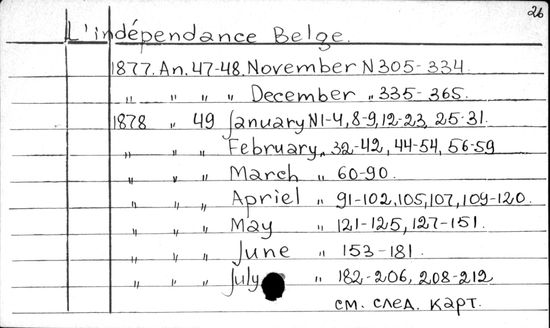 26
L'indépendance Belge.
1877. An. 47-48. November N 305-334.
" " " " December " 335-365.
1878 " 49 January N1-4, 8-9, 12-23, 25-31.
" " " February " 32-42, 44-54, 56-59
" " " March " 60-90.
" " " Apriel " 91-102, 105, 107, 109-120.
" " " May " 121-125, 127-151.
" " " June " 153-181.
" " " July " 182-206, 208-212
см. след. карт.